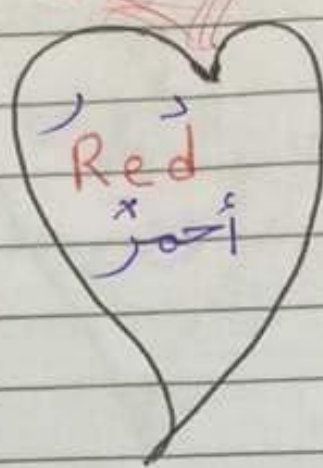 ر د
Red
أحمر